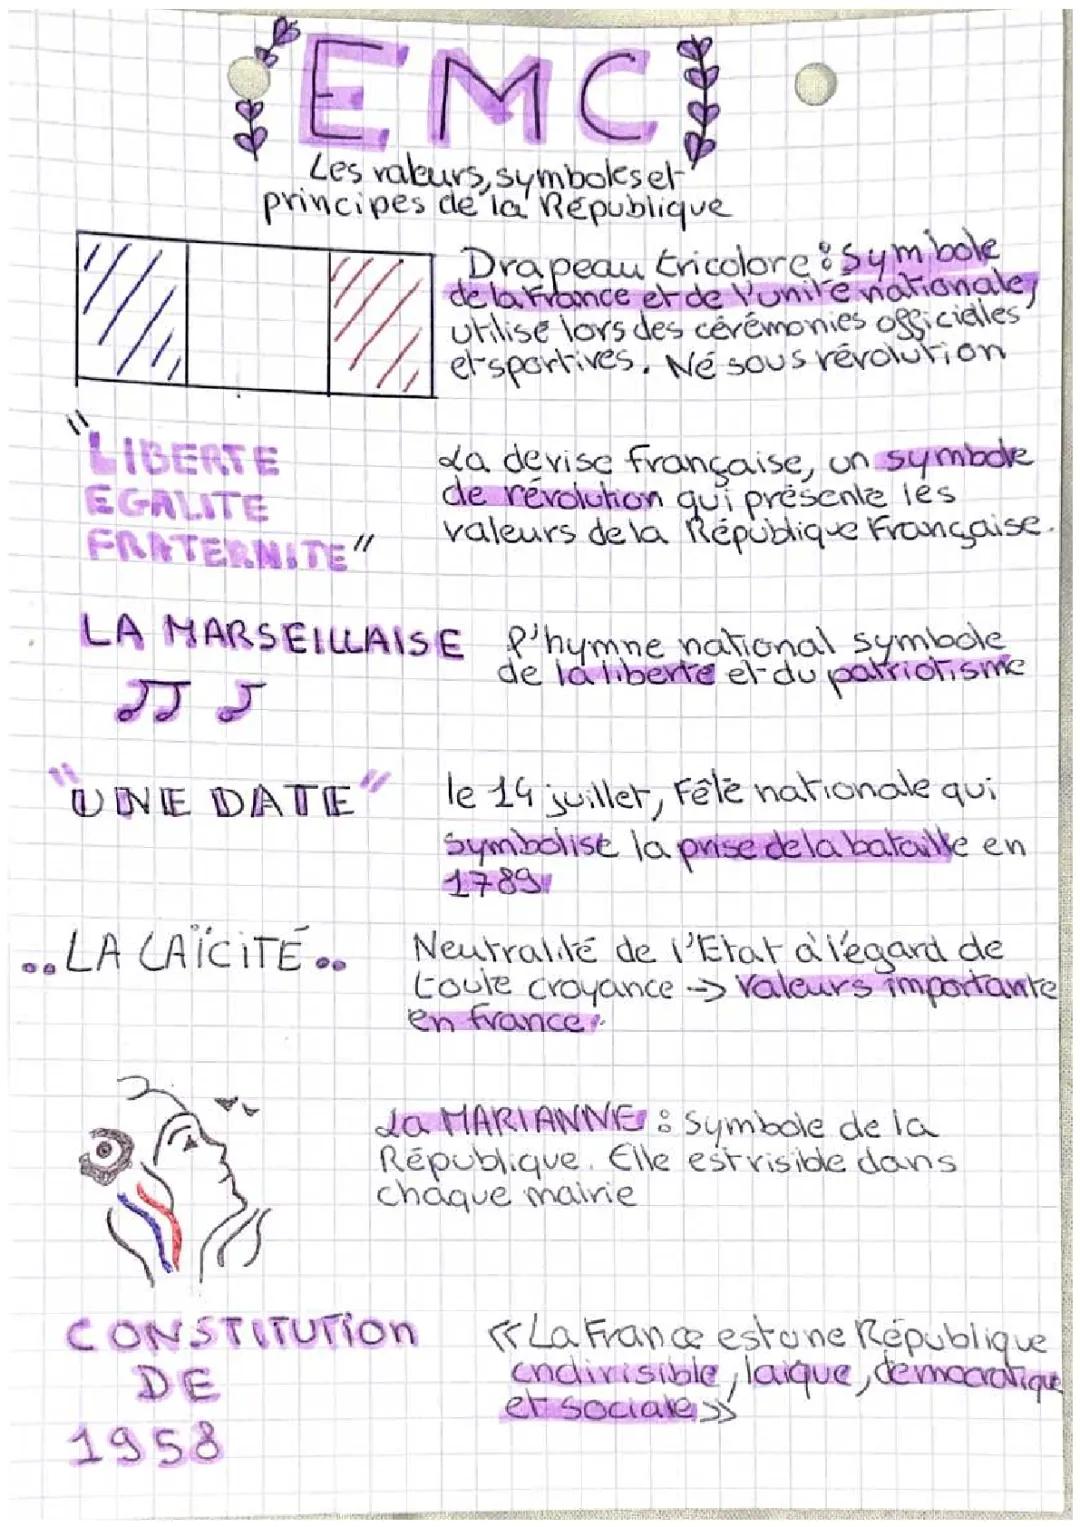 EMC
Les valeurs, symboles et
principes de la République
Drapeau tricolore : Symbole
de la France et de l'unité nationale,
utilisé lors des cérémonies officielles
et sportives. Né sous révolution
"LIBERTE
EGALITE
FRATERNITE"
La devise française, un symbole
de révolution qui présente les
valeurs de la République Française.
LA MARSEILLAISE
l'hymne national symbole
de la liberté et du patriotisme
"UNE DATE"
le 14 juillet, Fête nationale qui
symbolise la prise de la bataille en
1789
..LA LAÏCITÉ..
Neutralité de l'Etat à l'égard de
toute croyance -> Valeurs importante
en france.
La MARIANNE : Symbole de la
République. Elle est visible dans
chaque mairie
CONSTITUTION
DE
1958
«La France est une République
indivisible, laïque, démocratique
et sociale»